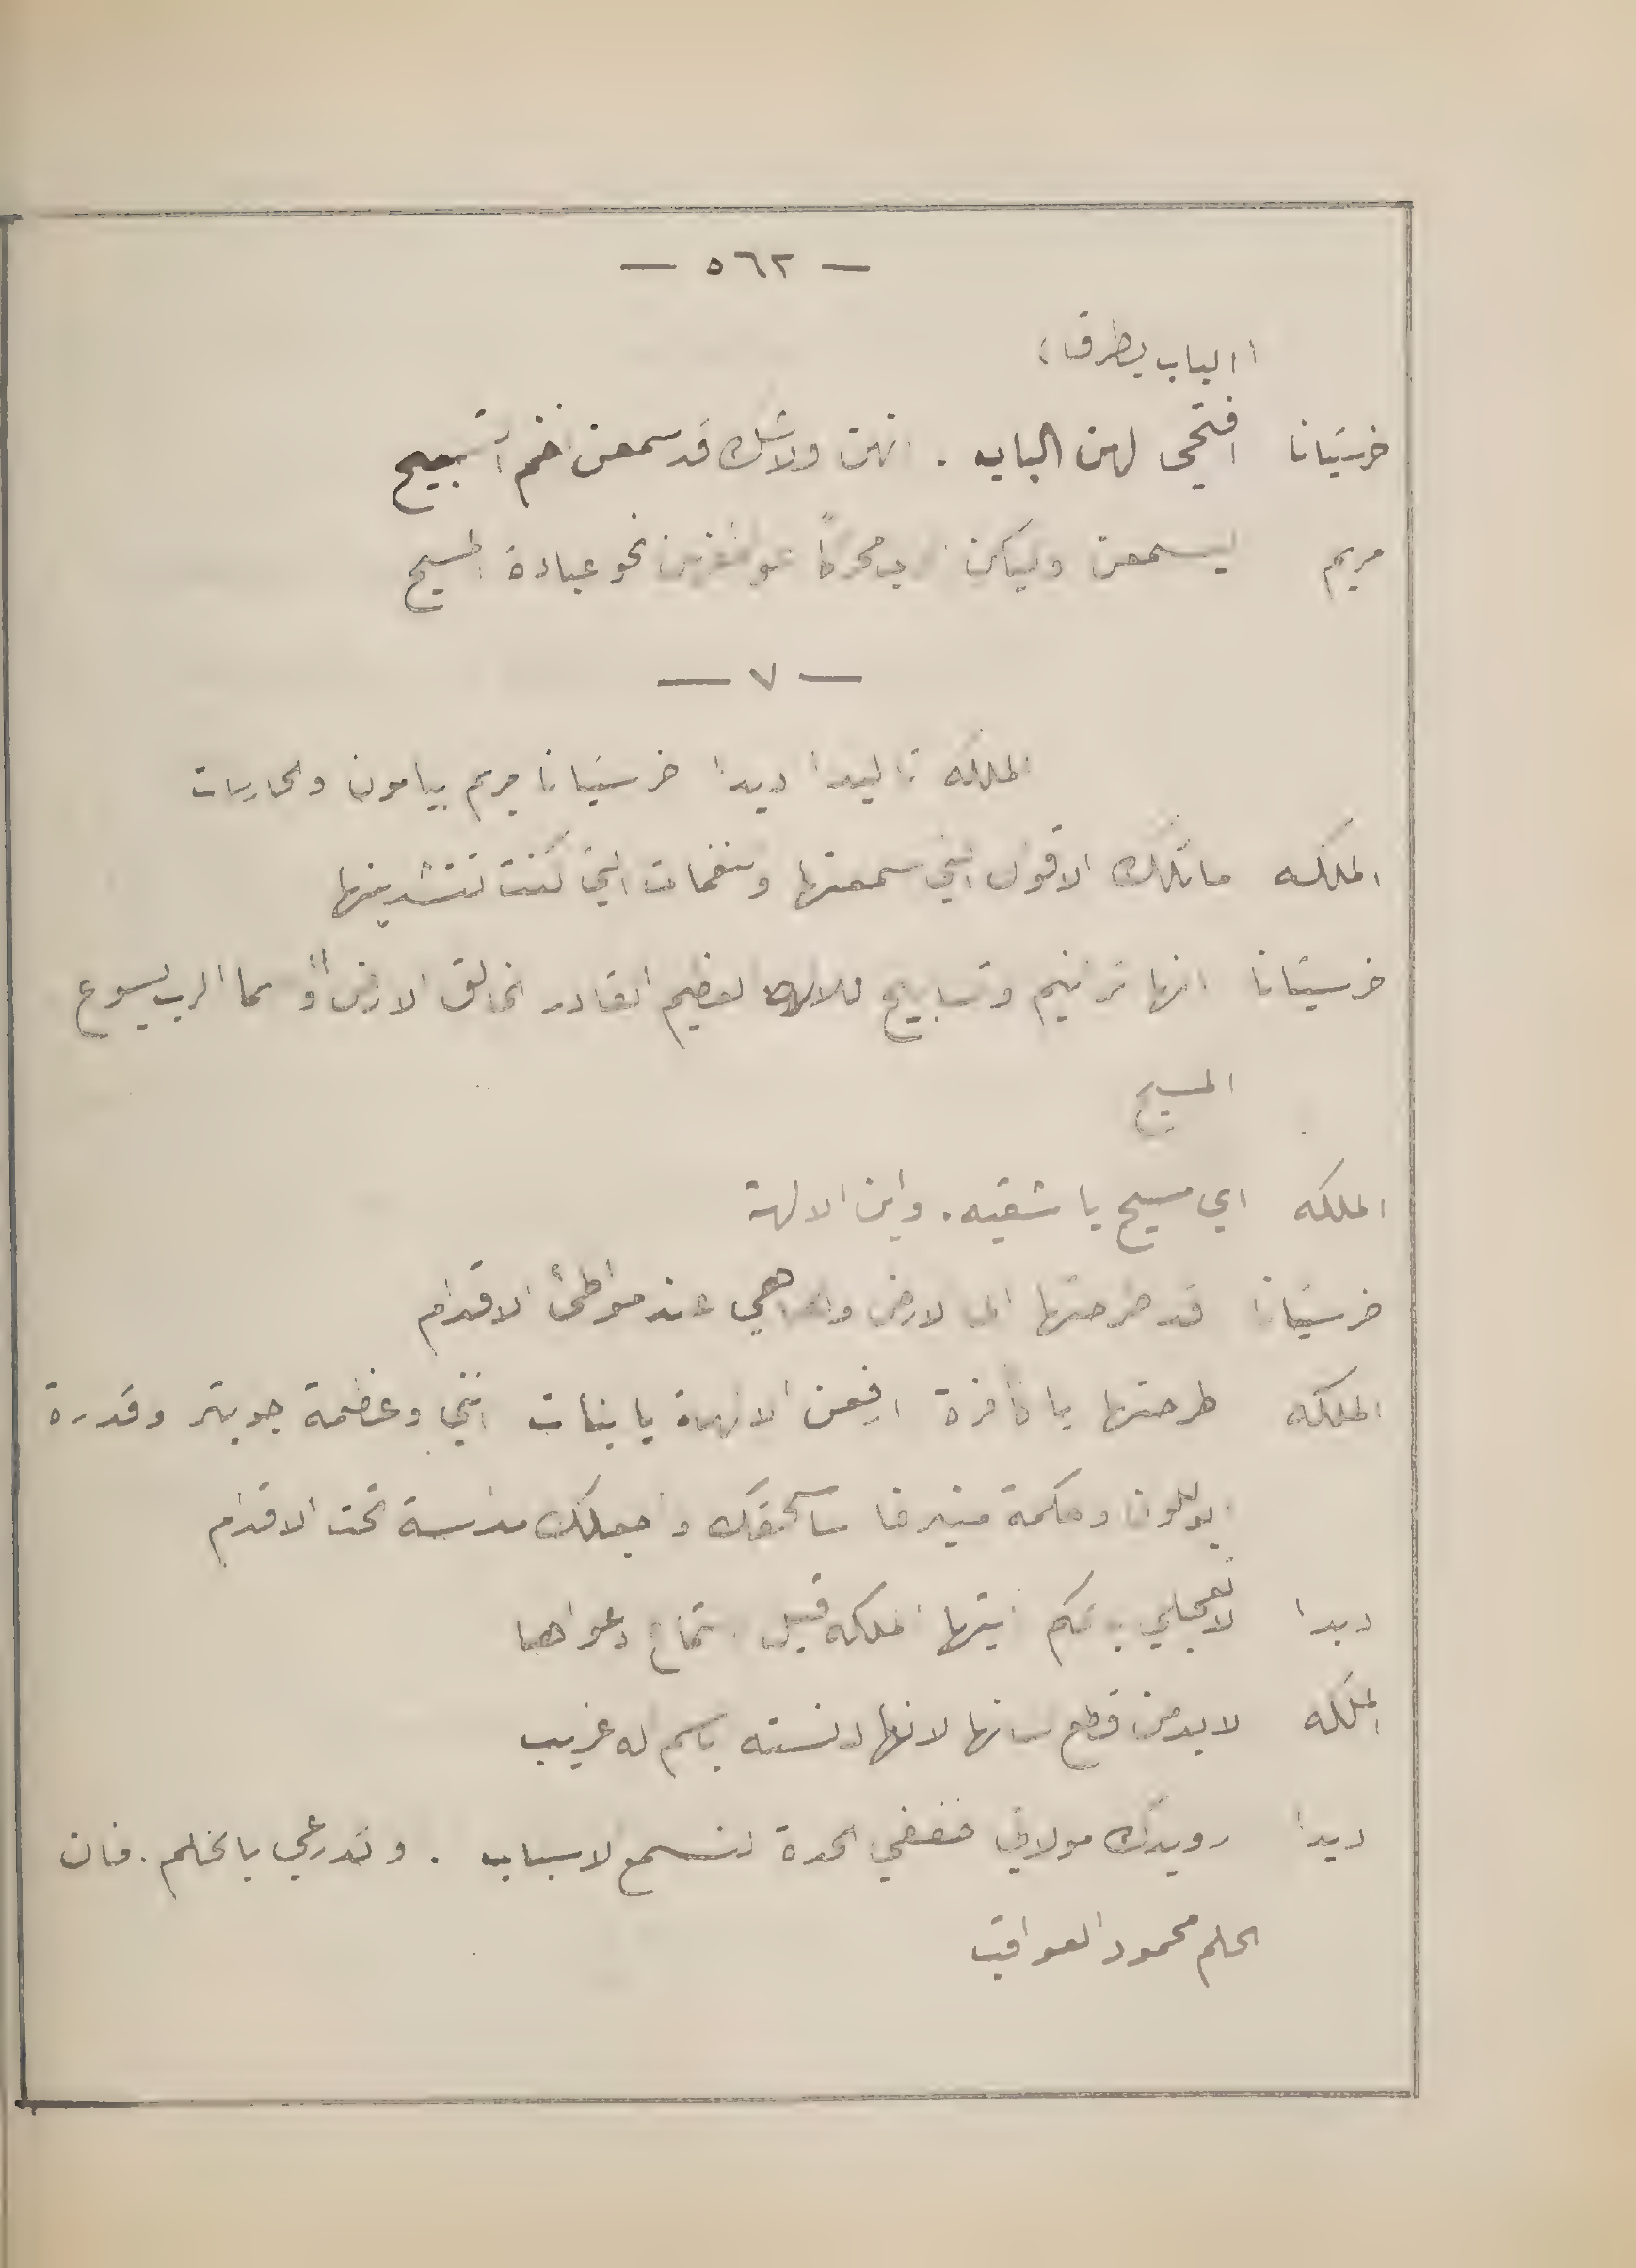 — ٥٦٢ —
( الباب يطرق )
خرستيانا افتحي لهن الباب . انهن ولاشك قد سمعن نغم التسبيح
مريم ليسمعن وليكن محركًا عواطفهن نحو عبادة المسيح
— ٧ —
الملكه تاليدا ديدا خرستيانا مريم بيامون والحاربات
الملكه ما تلك الاقوال التي سمعتها والنغمات التي كنت تنشدينها
خرستيانا انها ترانيم وتسابيح للاله العظيم القادر الخالق الارض والسما الرب يسوع
المسيح
الملكه اي مسيح يا شقيه . واين الالهة
خرستيانا قد طرحتها الى الارض وها هي عند مواطئ الاقدام
الملكه طرحتها يا كافرة ارفعن الالهة يا بنات انني وعظمة جوبيتر وقدرة
ابوللون وحكمة منيرفا سأسحقك واجعلك مداسة تحت الاقدام
ديدا لا تعجلي بالحكم ايتها الملكه قبل استماع دعواها
الملكه لا بد من قطع لسانها لانها دنسته باسم اله غريب
ديدا رويدك مولاتي خففي الحدة لنسمع الاسباب . وتدرعي بالحلم . فان
الحلم محمود العواقب